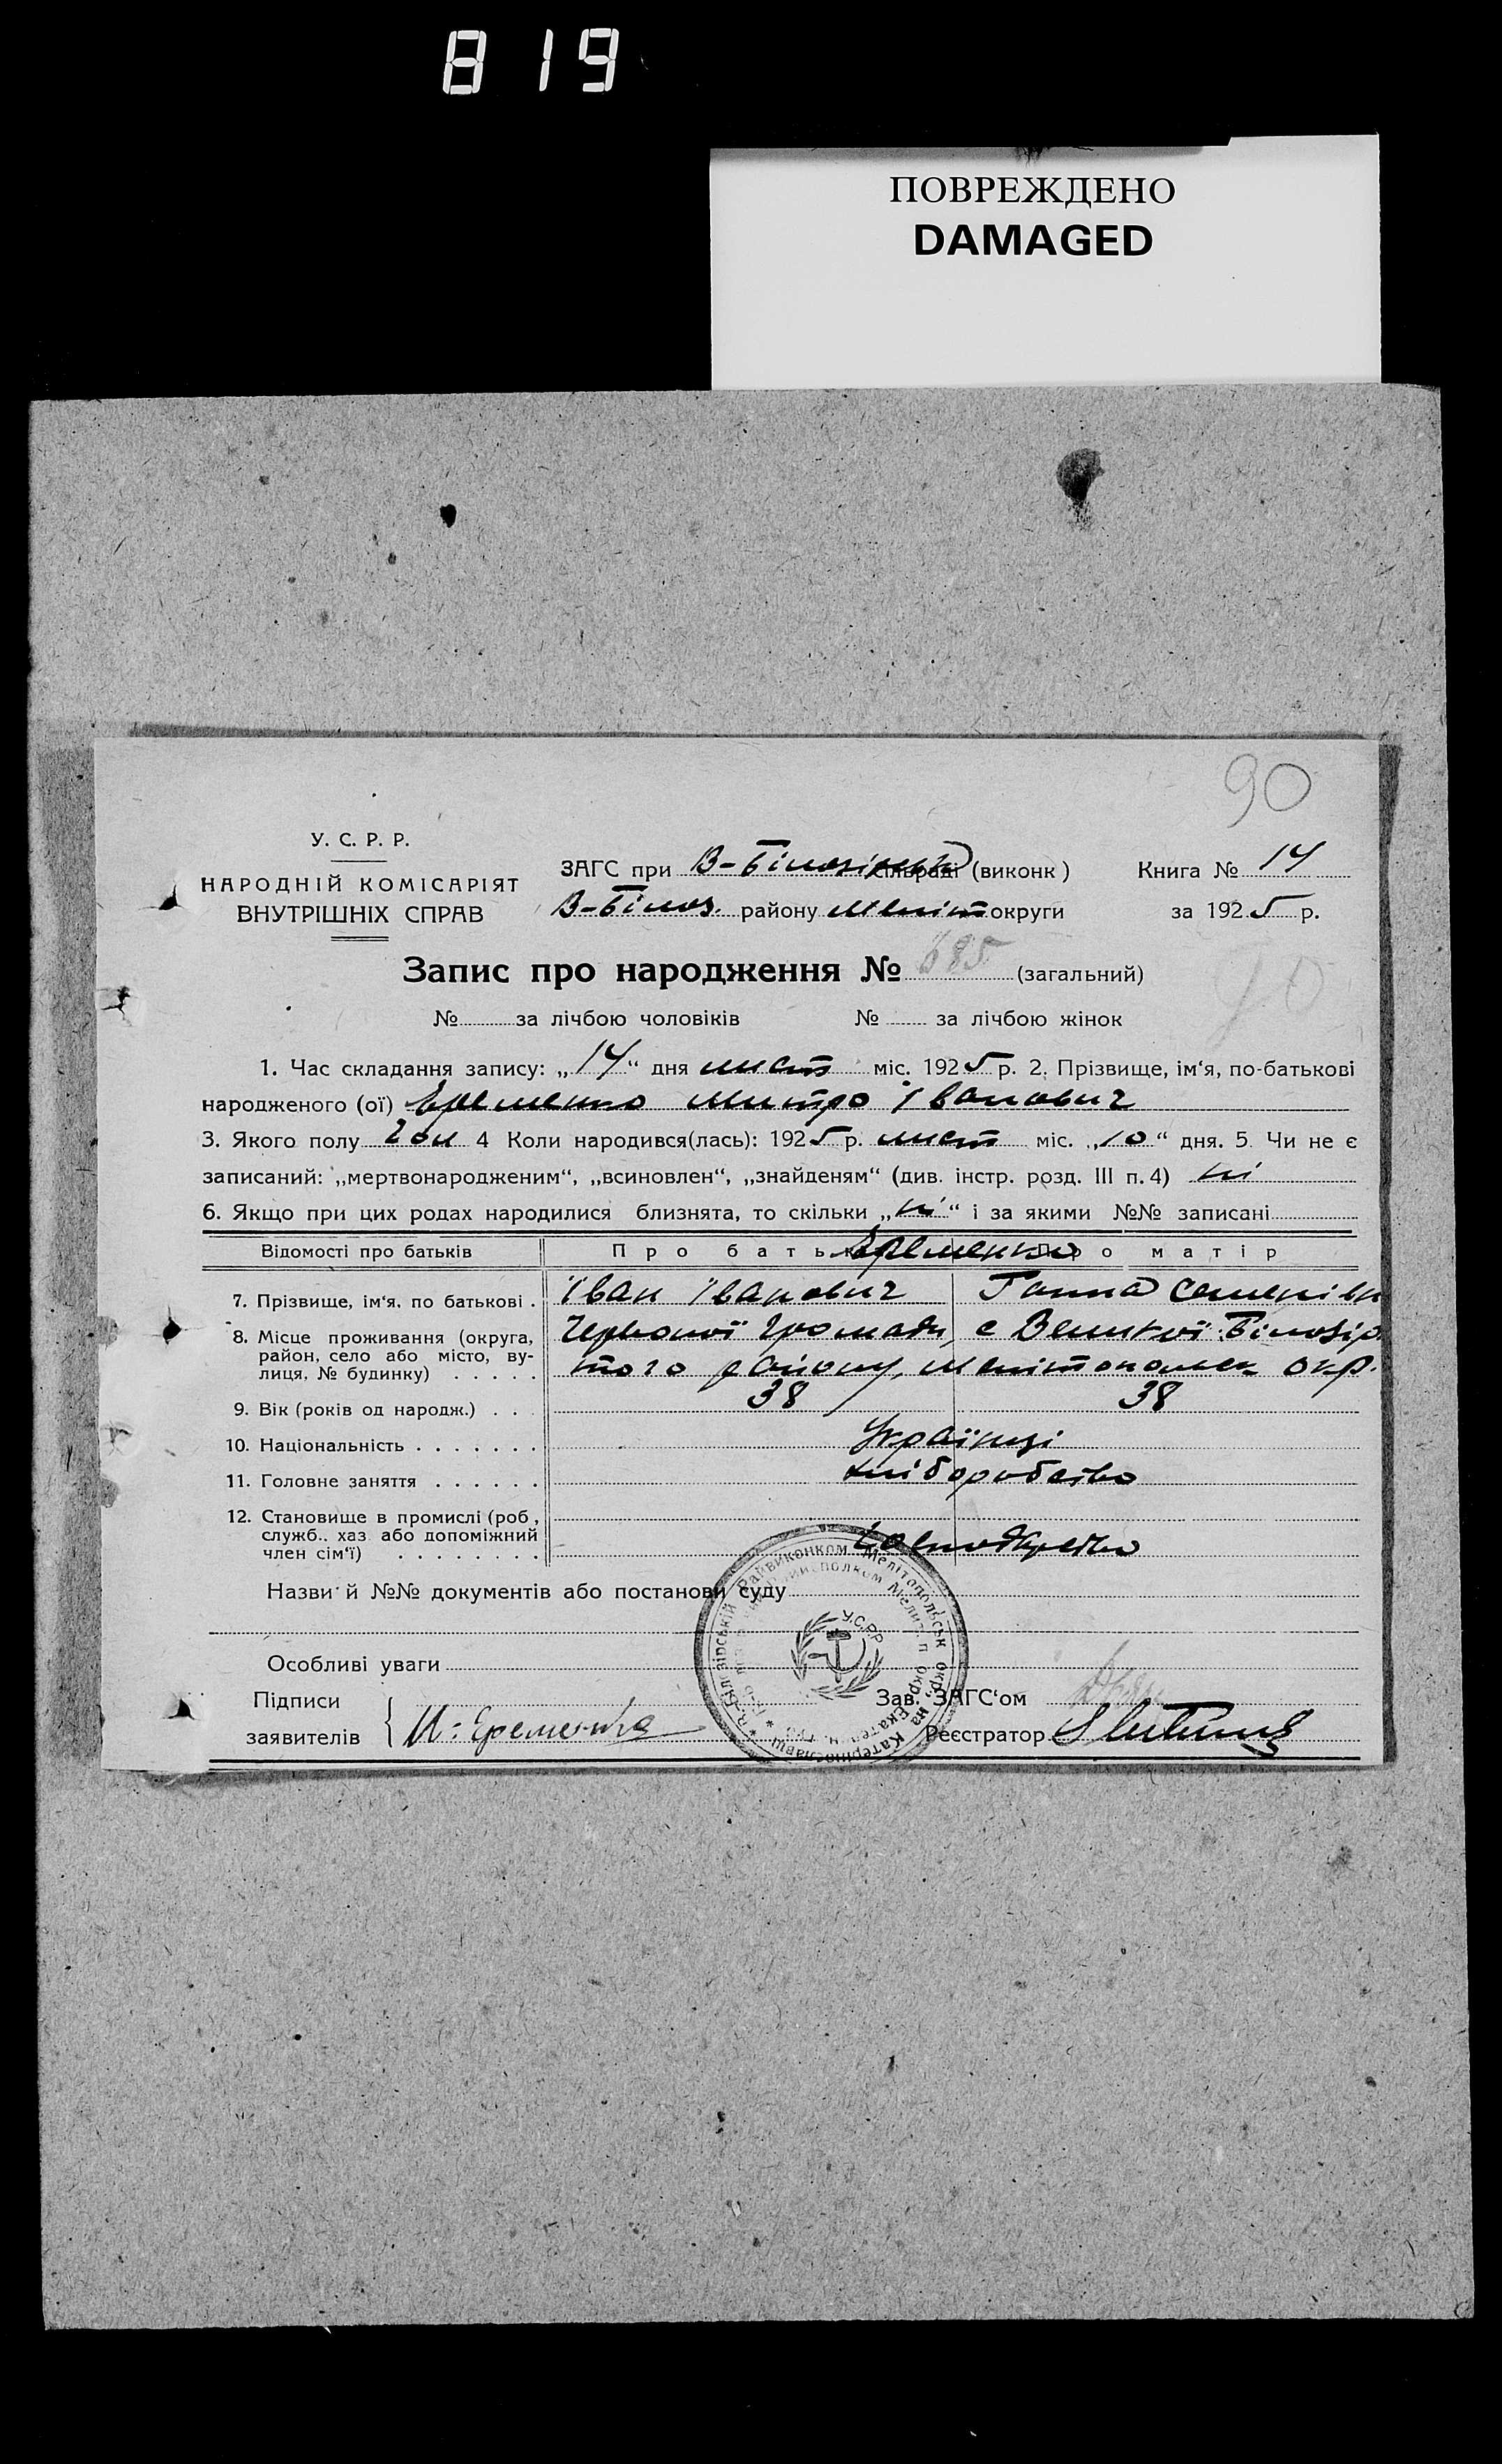 819
ПОВРЕЖДЕНО
DAMAGED
90
У. С. Р. Р.
НАРОДНІЙ КОМІСАРІЯТ
ВНУТРІШНІХ СПРАВ
ЗАГС при В-Білозірськ (виконк)
Книга № 14
В-Білоз. району Меліт округи
за 1925 р.
Запис про народження № 685 (загальний)
№ за лічбою чоловіків № за лічбою жінок
1. Час складання запису: „14“ дня лист міс. 1925 р. 2. Прізвище, ім‘я, по-батькові
народженого (ої) Еременко Митро Іванович
3. Якого полу чол 4 Коли народився(лась): 1925 р. лист міс. „10“ дня. 5. Чи не є
записаний: „мертвонародженим“, „всиновлен“, „знайденям“ (див. інстр. розд. III п. 4) ні
6. Якщо при цих родах народилися близнята, то скільки „ні“ і за якими №№ записані
Відомості про батьків Про батька Еременко Про матір
7. Прізвище, ім‘я, по батькові . Іван Іванович Ганна Семенівн
8. Місце проживання (округа, Червоної Громади, с Великої Білозір
район, село або місто, ву-
лиця, № будинку) . . . . . того району, Мелітопольск окр.
9. Вік (років од народж.) . . . 38 38
10. Національність . . . . . . . Українці
11. Головне заняття . . . . . . хліборобство
12. Становище в промислі (роб,
служб.. хаз або допоміжний
член сім‘ї) . . . . . . . .
Назви й №№ документів або постанови суду
У.С.Р.Р
Особливі уваги
Підписи
заявителів
И. Еременко
Зав. ЗАГС‘ом
Реєстратор